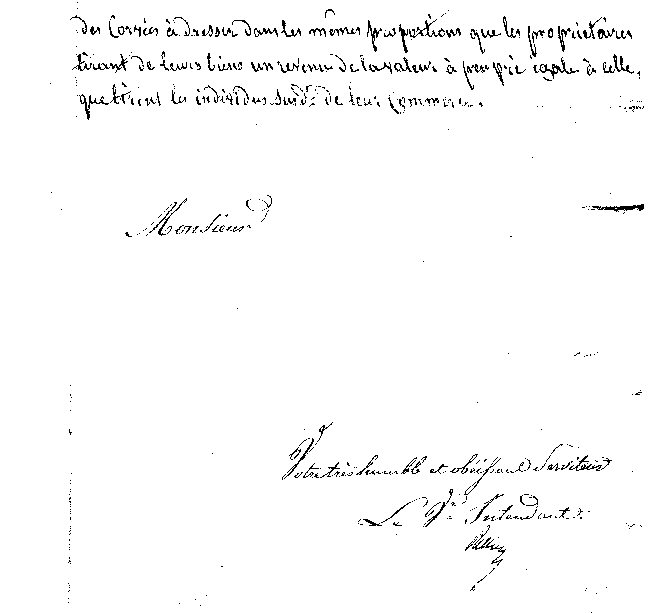 des Corvées à dresser dans les mêmes proportions que les propriétaires
tirant de leurs biens un revenu de la valeur à peu prés égale à celle,
que tirent les individus susds. de leur Commerce.
Monsieur
Votre très humble et obéissant Serviteur
Le Intendant